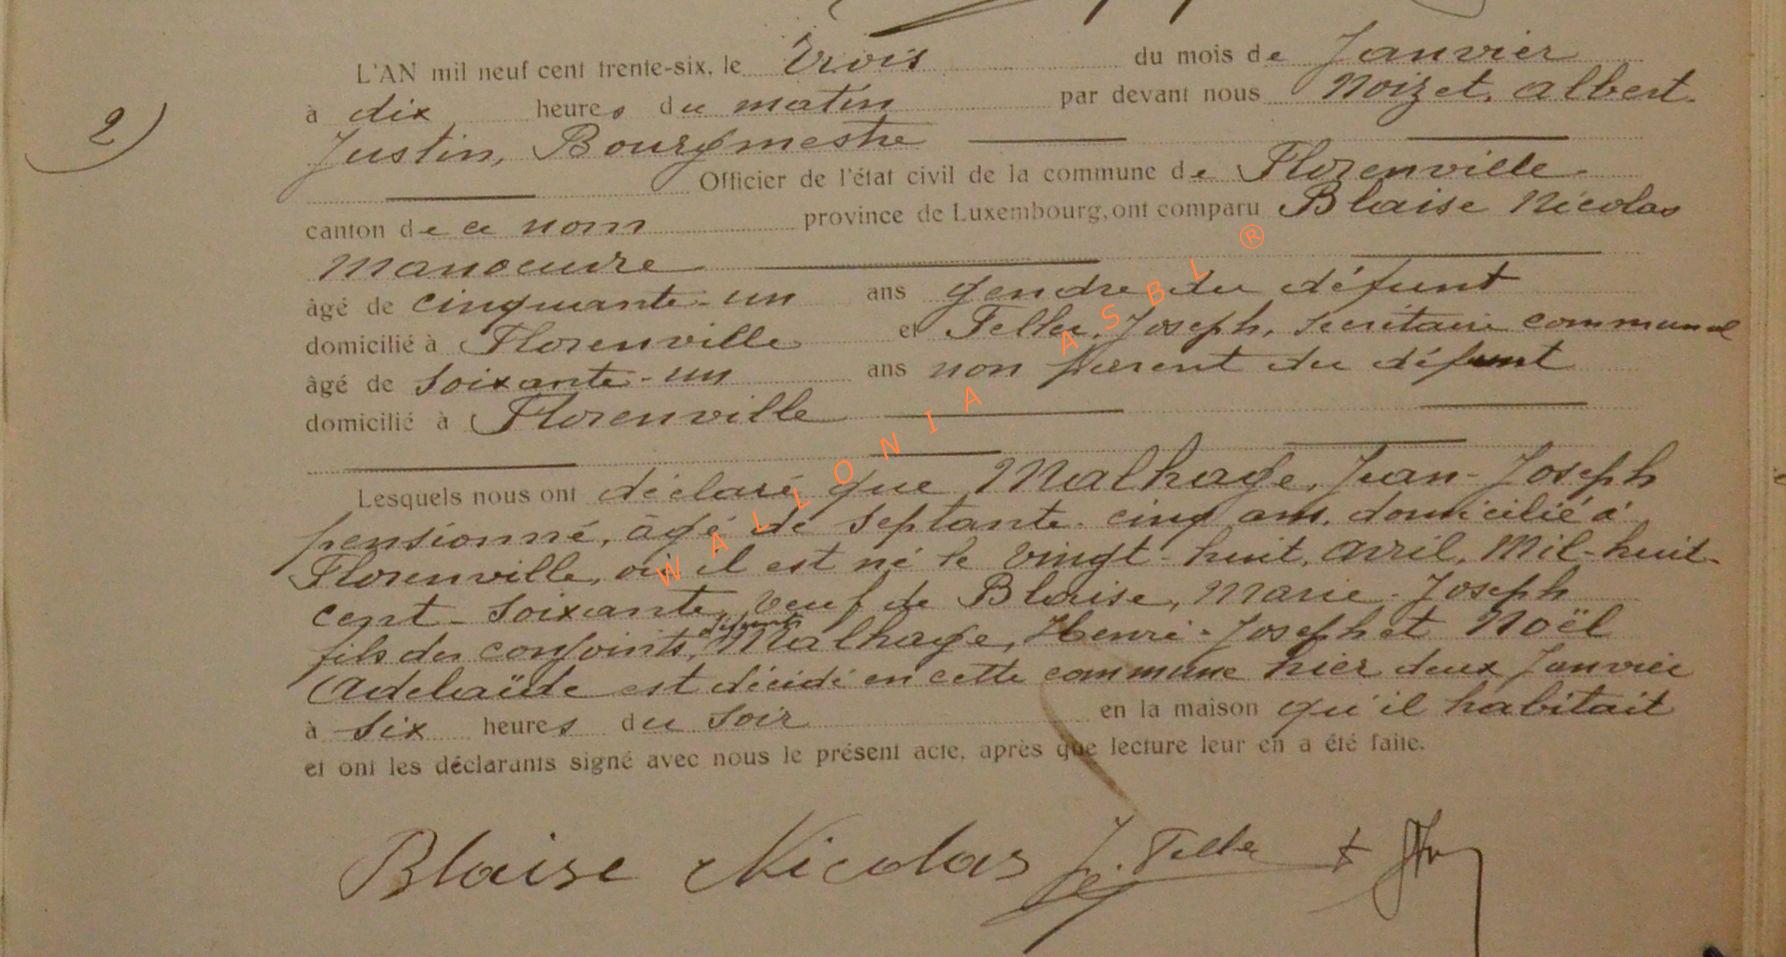 L'AN mil neuf cent trente-six, le Trois du mois de Janvier
2) à dix heures du matin par devant nous Noizet, Albert-
Justin, Bourgmestre
Officier de l'état civil de la commune de Florenville,
canton de ce nom province de Luxembourg, ont comparu Blaise Nicolas
manoeuvre
âgé de cinquante-un ans gendre du défunt
domicilié à Florenville et Feller, Joseph, secrétaire communal
âgé de soixante-un ans non parent du défunt
domicilié à Florenville
Lesquels nous ont déclaré que Malhage, Jean-Joseph
pensionné, âgé de septante-cinq ans, domicilié à
Florenville, où il est né le vingt-huit, avril, Mil-huit-
cent-soixante, veuf de Blaise, Marie-Joseph
fils des conjoints, défunts Malhage, Henri-Joseph et Noël
Adelaïde est décédé en cette commune hier deux Janvier
à six heures du soir en la maison qu'il habitait
et ont les déclarants signé avec nous le présent acte, après que lecture leur en a été faite.
Blaise Nicolas J. Feller
WALLONIA ASBL ®